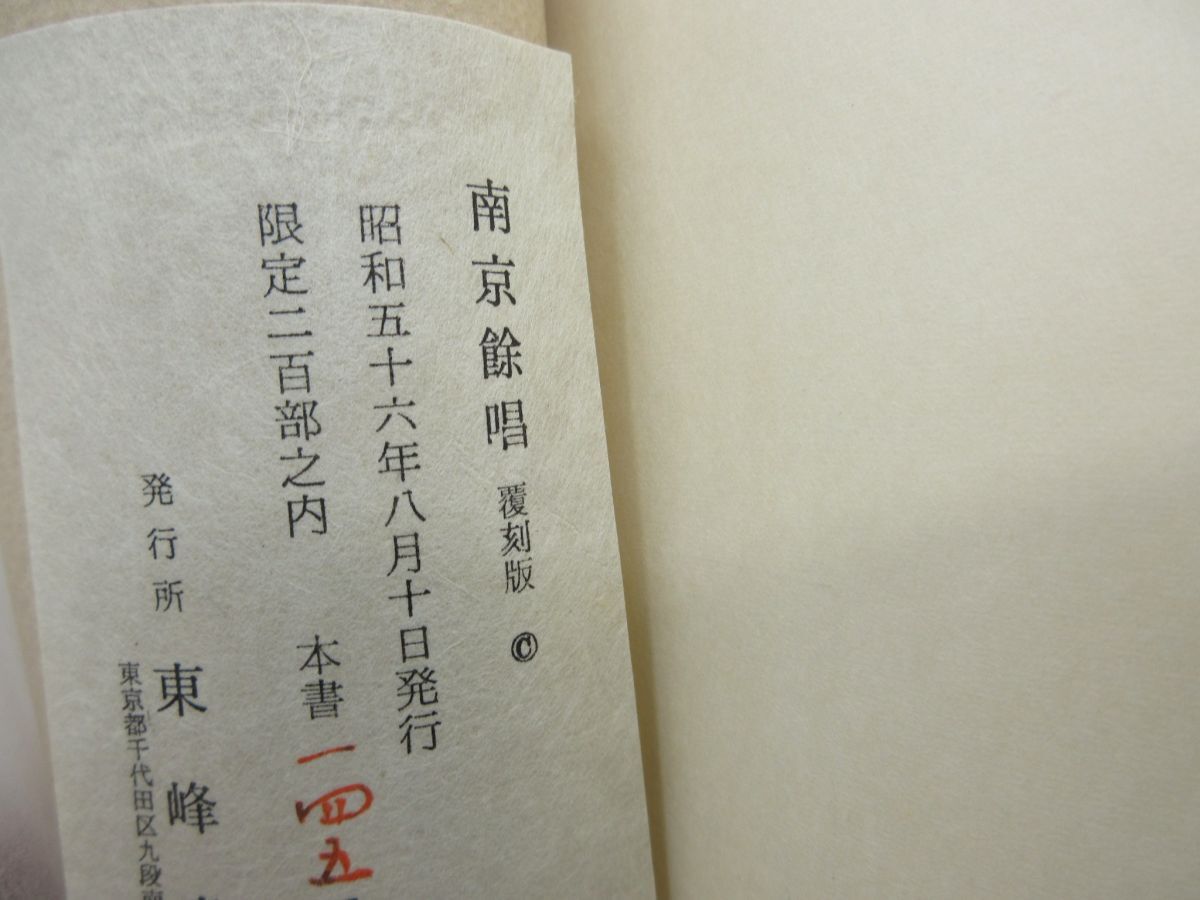 南京餘唱 覆刻版 ©
昭和五十六年八月十日発行
限定二百部之内 本書一四五
発行所 東峰
東京都千代田区九段